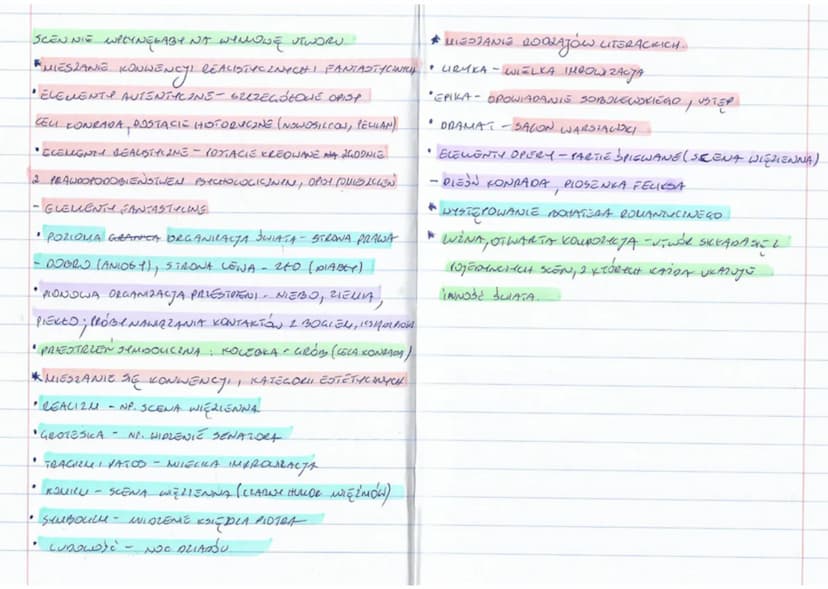 SCEN NIE WPŁYNĘŁABY NA WYMOWĘ UTWORU.
* MIESZANIE KONWENCJI REALISTYCZNYCH I FANTASTYCZNYCH
• ELEMENTY AUTENTYCZNE - SZCZEGÓŁOWE OPISY
CELI KONRADA, POSTACIE HISTORYCZNE (NOWOSILCOW, PELIKAN)
• ELEMENTY REALISTYCZNE - POSTACIE KREOWANE NA ZGODNIE
Z PRAWDOPODOBIEŃSTWEM PSYCHOLOGICZNYM, OPISY POMIESZCZEŃ
- ELEMENTY FANTASTYCZNE
• POZIOMA GRANICA ORGANIZACJA ŚWIATA - STRONA PRAWA
- DOBRO (ANIOŁY), STRONA LEWA - ZŁO (DIABŁY)
• PIONOWA ORGANIZACJA PRZESTRZENI - NIEBO, ZIEMIA,
PIEKŁO; PRÓBY NAWIĄZANIA KONTAKTÓW Z BOGIEM,
• PRZESTRZEŃ SYMBOLICZNA: KOLEBKA - GRÓB (CELA KONRADA)
* MIESZANIE SIĘ KONWENCJI, KATEGORII ESTETYCZNYCH
• REALIZM - NP. SCENA WIĘZIENNA
• GROTESKA - NP. WIDZENIE SENATORA
• TRAGIZM I PATOS - WIELKA IMPROWIZACJA
• KOMIZM - SCENA WIĘZIENNA (CZARNY HUMOR WIĘŹNIÓW)
• SYMBOLIZM - WIDZENIE KSIĘDZA PIOTRA
• LUDOWOŚĆ - NOC DZIADÓW
* MIESZANIE RODZAJÓW LITERACKICH.
• LIRYKA - WIELKA IMROWIZACJA
• EPIKA - OPOWIADANIE SOBOLEWSKIEGO, USTĘP
• DRAMAT - SALON WARSZAWSKI
• ELEMENTY OPERY - PARTIE ŚPIEWANE (SCENA WIĘZIENNA)
- PIEŚŃ KONRADA, PIOSENKA FELIKSA
* WYSTĘPOWANIE BOHATERA ROMANTYCZNEGO
* LUŹNA, OTWARTA KOMPOZYCJA - UTWÓR SKŁADA SIĘ Z
POJEDYNCZYCH SCEN, Z KTÓRYCH KAŻDA UKAZUJE
INNOŚĆ ŚWIATA.